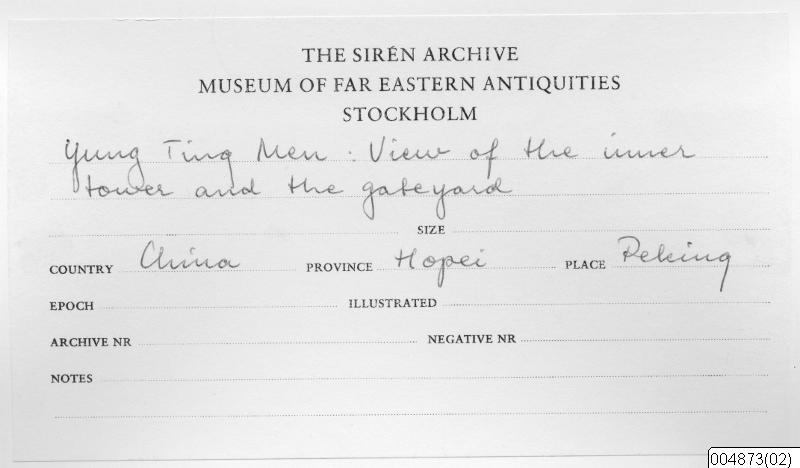 THE SIRÉN ARCHIVE
MUSEUM OF FAR EASTERN ANTIQUITIES
STOCKHOLM
Yung Ting Men : View of the inner
tower and the gateyard
SIZE
COUNTRY China PROVINCE Hopei PLACE Peking
EPOCH ILLUSTRATED
ARCHIVE NR NEGATIVE NR
NOTES
004873(02)